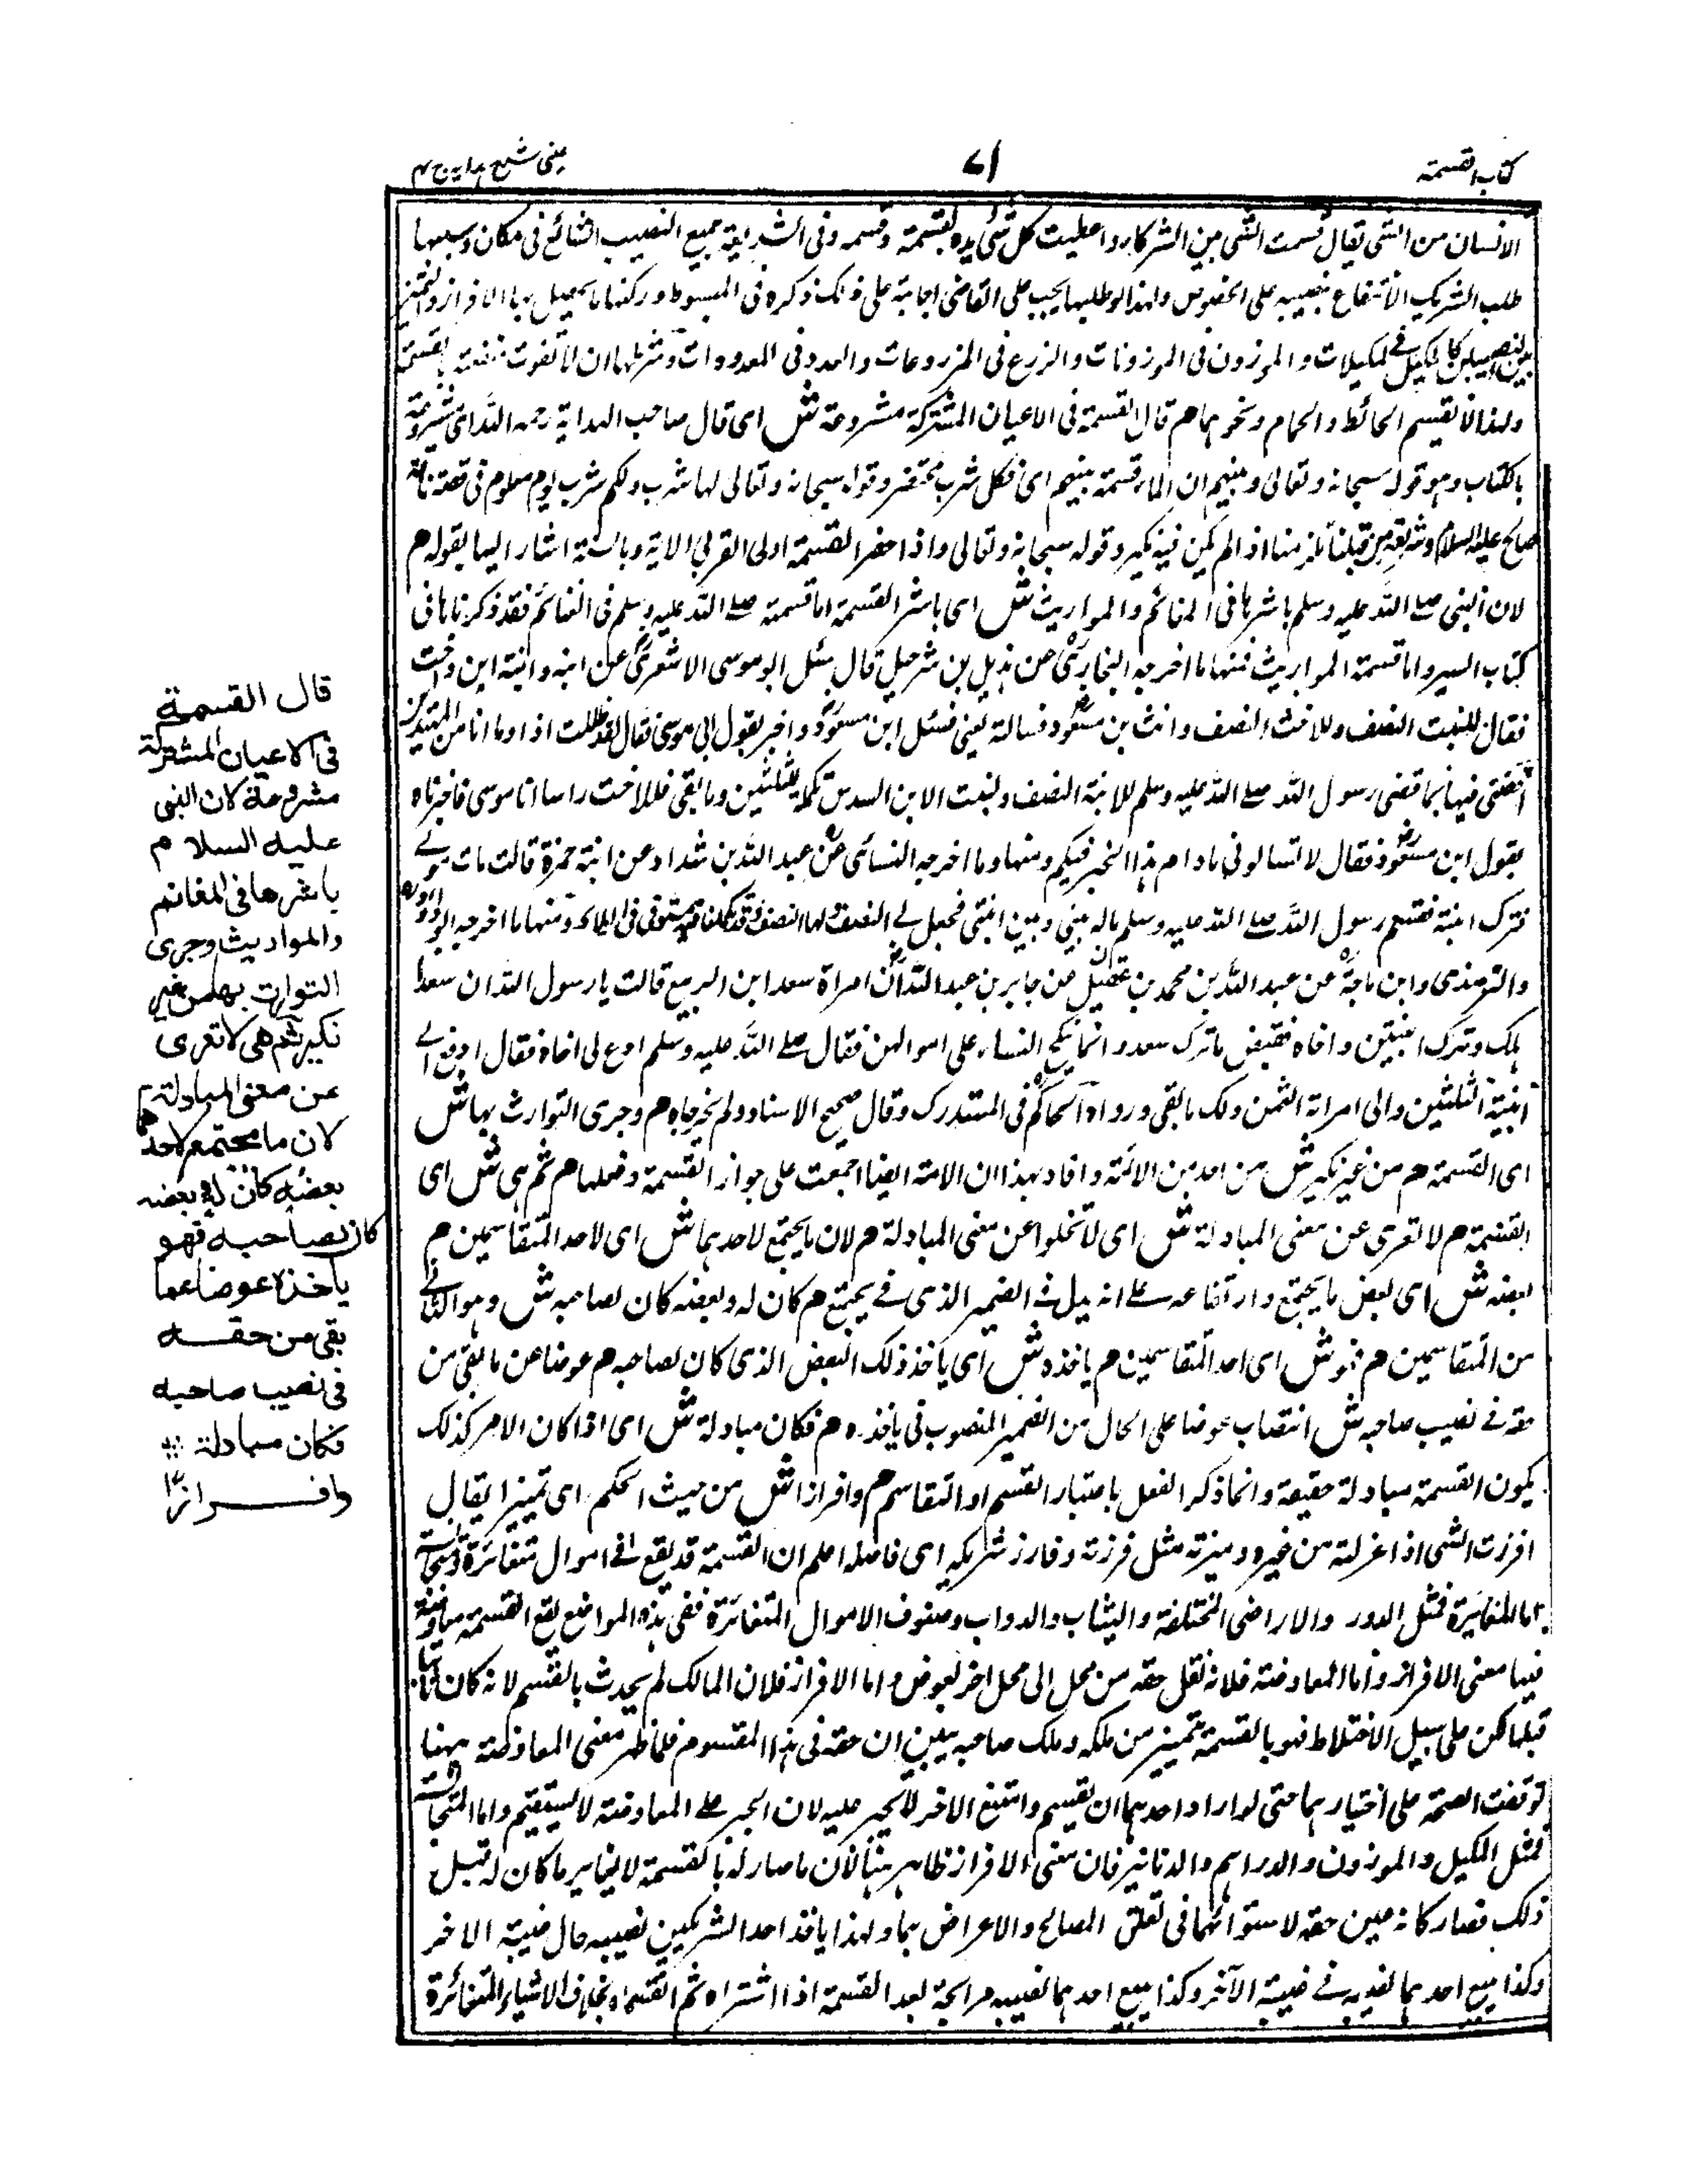 كتاب القسمة
٧١
عينى شرح هداية ج ٤
الانسان من الشئ يقال قسمت الشئ بين الشركاء واعطيت كل شريك قسمة وقسمه وفى الشريعة جميع النصيب الشائع فى مكان وسببها
طلب الشريك الانتفاع بنصيبه على الخصوص ولهذا لو طلبها يجب على القاضى اجابة على ذلك ذكره فى المبسوط وركنها ما يحصل بها الافراز والتميز
بين النصيبين كالكيل فى المكيلات والموزون فى الموزونات والزرع فى المزروعات والعدد فى المعدودات وشرطها ان لا تفوت منفعته بالقسمة
ولهذا لا يقسم الحائط والحمام ونحوهما م قال القسمة فى الاعيان المشتركة مشروعة ش اى قال صاحب الهداية رحمه الله اى شرعية
بالكتاب وهو قوله سبحانه وتعالى ونبئهم ان الماء قسمة بينهم اى فكل شرب محتضر وقوله سبحانه وتعالى لها شرب ولكم شرب يوم معلوم فى قصة ناقة
صالح عليه السلام وشريعة من قبلنا تلزمنا اذا لم يكن فيه نكير وقوله سبحانه وتعالى واذا حضر القسمة اولى القربى الاية وبالسنة اشار اليها بقوله م
لان النبى صلے الله عليه وسلم باشرها فى المغانم والمواريث ش اى باشر القسمة اما قسمة صلے الله عليه وسلم فى الغنائم فقد ذكرناها فى
كتاب السير واما قسمة المواريث فمنها ما اخرجه البخارى عن هذيل بن شرحبيل قال سئل ابو موسى الاشعرى عن ابنه وابنة ابن واخت
فقال للبنت النصف وللاخت النصف وائت بن مسعود فسالة يعنى فسئل ابن مسعود واخبر بقول ابى موسى فقال لقد ظللت اذا وما انا من المهتدين
اقضى فيها بما قضى رسول الله صلے الله عليه وسلم للابنة النصف ولبنت الابن السدس تكملة للثلثين وما بقى فللاخت راسا اتا موسى فاخبرناه
بقول ابن مسعود فقال لا تسالونى ما دام هذا الخبر فيكم ومنها وما اخرجه النسائى عن عبد الله بن شداد عن ابنة حمزة قالت مات مولى لے
فترك ابنة فقسم رسول الله صلے الله عليه وسلم ماله بينى وبين ابنتى فجعل لے النصف ولها النصف وقد تكلمنا فيه مستوفى فى الولاء ومنها ما اخرجه ابو داؤد
والترمذى وابن ماجة عن عبد الله بن محمد بن عقيل عن جابر بن عبد الله ان امراة سعد ابن الربيع قالت يا رسول الله ان سعدا
هلك وترك ابنتين واخاه فقبض ما ترك سعد وانما ينكح النساء على اموالهن فقال صلے الله عليه وسلم ادع لى اخاه فقال ادفع الے
ابنتيه الثلثين والى امراته الثمن ولك ما بقى ورواه الحاكم فى المستدرك وقال صحيح الاسناد ولم يخرجاه م وجرى التوارث بها ش
اى القسمة م من غير نكير ش من احد من الائمة وافاد بهذا ان الامة ايضا اجمعت على جواز القسمة وفعلها م ثم هى ش اى
القسمة م لا تعرى عن معنى المبادلة ش اى لا تخلوا عن معنى المبادلة م لان ما يجتمع لاحدهما ش اى لاحد المتقاسمين م
بعضه ش اى بعض ما يجتمع وارتفاعه علے انه بدل فى الضمير الذى فے يجتمع م كان له وبعضه كان لصاحبه ش وهو الثانے
من المتقاسمين م فهو ش اى احد المتقاسمين م ياخذه ش اى ياخذ ذلك البعض الذى كان لصاحبه م عوضا عن ما بقى من
حقه فے نصيب صاحبه ش انتصاب عوضا على الحال من الضمير المنصوب فى ياخذه م فكان مبادلة ش اى اذا كان الامر كذلك
يكون القسمة مبادلة حقيقة وانما ذكر الفعل باعتبار القسم او التقاسم م وافرازا ش من حيث الحكم اى تميزا يقال
افرزت الشئ اذا عزلته من غيره وميزته مثل فرزته وفارز شريكه اى فاصله اعلم ان القسمة قد يقع فے اموال متغائرة ومتجانسة
اما المتغائرة فمثل الدور والاراضى المختلفة والثياب والدواب وصنوف الاموال المتغائرة ففى هذه المواضع يقع القسمة معاوضة
فيها معنى الافراز واما المعاوضة فلانه نقل حقه من محل الى محل اخر بعوض واما الافراز فلان المالك لم يحدث بالقسم لانه كان ثابتا
قبلها لكن على سبيل الاختلاط فهو بالقسمة يتميز من ملكه وملك صاحبه يبين ان حقه فى هذا المقسوم فلما ظهر معنى المعاوضة ههنا
توقفت الصحة على اختيارهما حتى لو اراد احدهما ان يقسم وامتنع الاخر لا يجبر عليه لان الجبر علے المعاوضة لا يستقيم واما المتجانسة
فمثل المكيل والموزون والدراهم والدنانير فان معنى الافراز ظاهر هنا لان ما صار له بالقسمة لا يغاير ما كان له قبل
ذلك فصار كانه عين حقه لاستوائهما فى تعلق المصالح والاعراض بها ولهذا ياخذ احد الشريكين نصيبه حال غيبة الاخر
وكذا يبيع احدهما نصيبه فے غيبة الآخر وكذا يبيع احدهما نصيبه مرابحة بعد القسمة اذا اشتراه ثم اقتسماه بخلاف الاشياء المتغائرة
قال القسمة
فى الاعيان المشتركة
مشروعة لان النبى
عليه السلام
باشرها فى المغانم
والمواريث وجرى
التوارث بها من غير
نكير ثم هى لا تعرى
عن معنى المبادلة
لان ما يجتمع لاحدهما
بعضه كان له وبعضه
كان لصاحبه فهو
ياخذه عوضا عما
بقى من حقه
فى نصيب صاحبه
فكان مبادلة
وافرازا ١٢